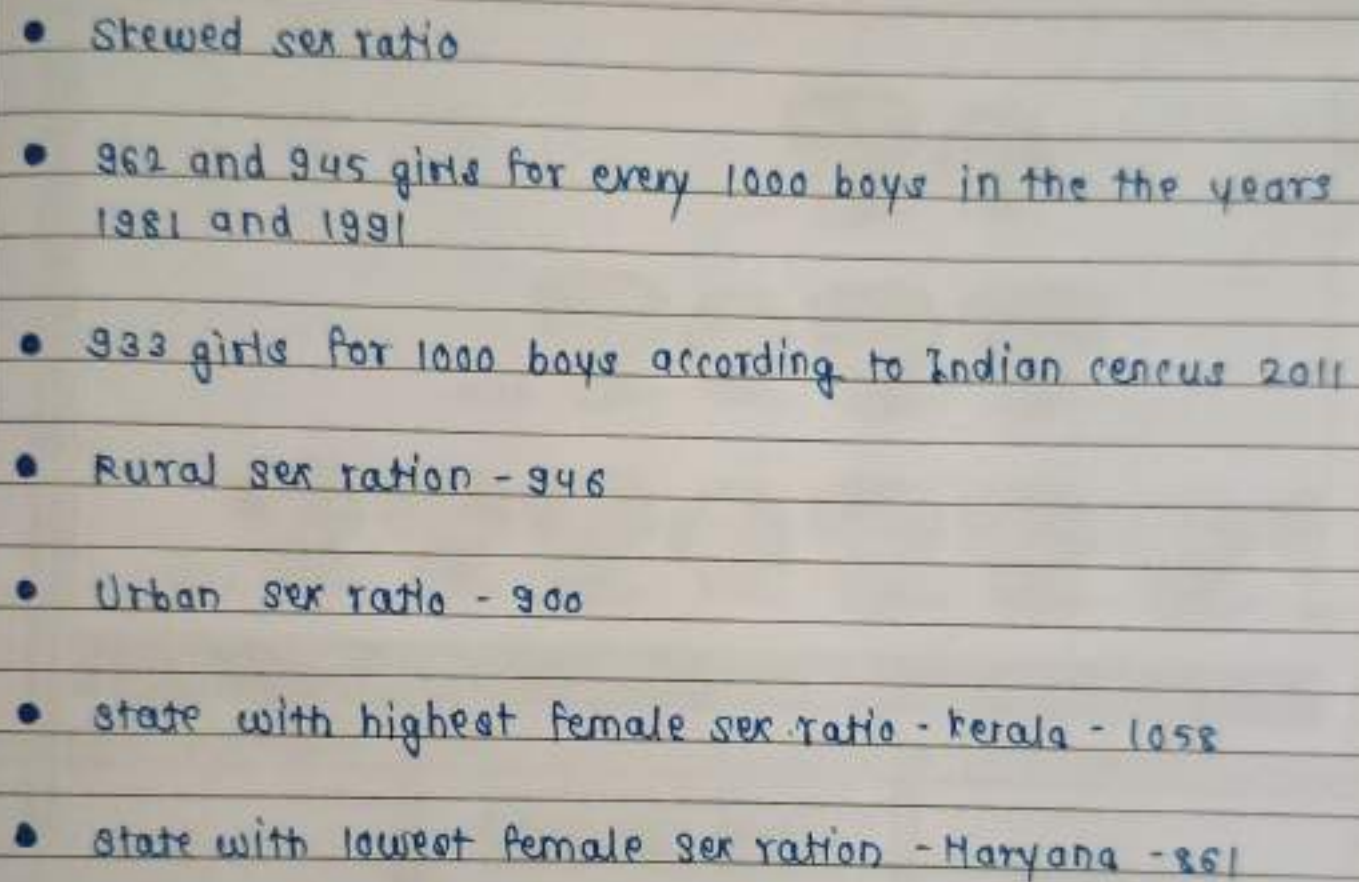 • Skewed sex ratio
• 962 and 945 girls for every 1000 boys in the the years
1981 and 1991
• 933 girls for 1000 boys according to Indian cencus 2011
• Rural sex ration - 946
• Urban sex ratio - 900
• state with highest female sex ratio - kerala - 1058
• state with lowest female sex ration - Haryana - 861